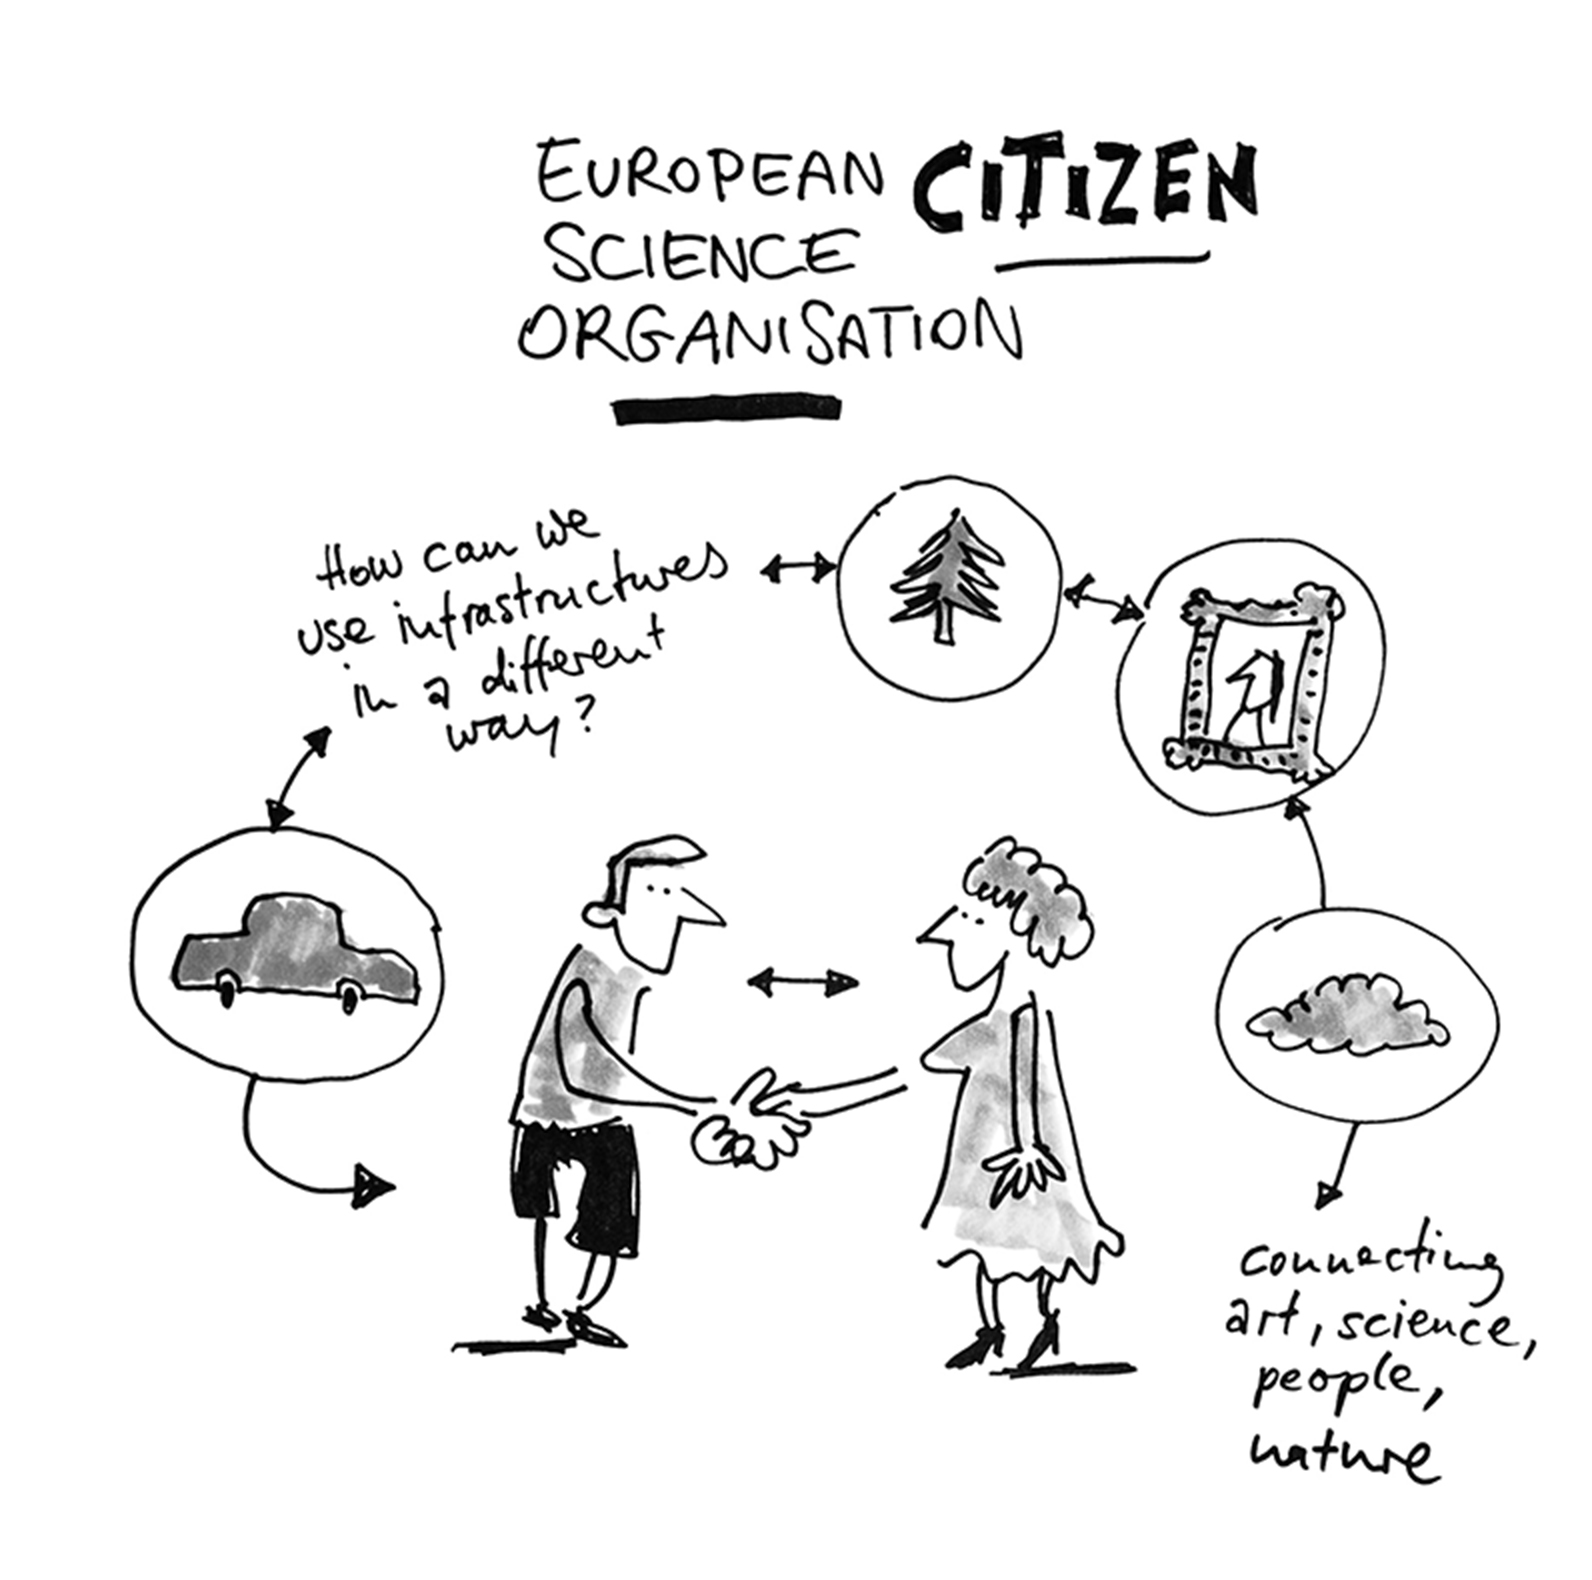 EUROPEAN CITIZEN
SCIENCE
ORGANISATION
How can we
use infrastructures
in a different
way?
connecting
art, science,
people,
nature